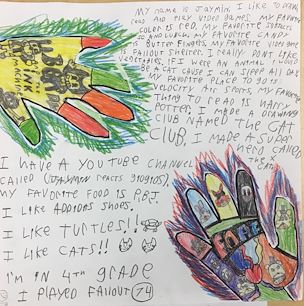 MY NAME IS JAYMIN I LIKE TO DRAW,
READ AND PLAY VIDEO GAMES. MY FAVORITE
COLOR IS RED, MY FAVORITE SUBJECTS
ARE LUNCH, MY FAVORITE CANDY
IS BUTTER FINGERS, MY FAVORITE VIDEO GAME
IS FALLOUT SHELTER. I REALLY DON'T LIKE
VEGETABLES, IF I WERE AN ANIMAL I WOULD
BE A CAT CAUSE I CAN SLEEP ALL DAY
MY FAVORITE PLACE TO GO IS
VELOCITY AIR SPORTS, MY FAVORITE
THING TO READ IS HARRY
POTTER, I MADE A DRAWING
CLUB NAMED THE CAT
CLUB, I MADE A SUPER
HERO CALLED
THE X
CAT
I HAVE A YOUTUBE CHANNEL
CALLED (JAYMIN REACTS
MY FAVORITE FOOD IS P.B.J.
I LIKE ADDIDAS SHOES.
I LIKE TURTLES!!
I LIKE CATS!!
I'M IN 4TH GRADE
I PLAYED FALLOUT 74